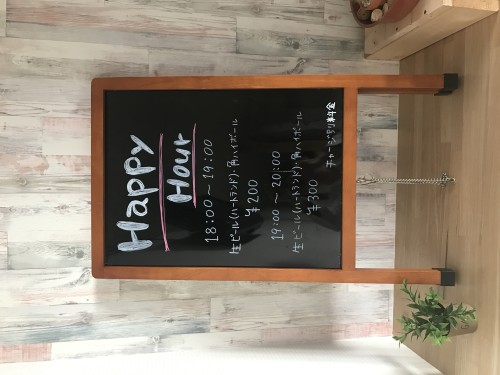 Happy
Hour
18:00～19:00
生ビール(ハートランド)・角ハイボール
¥200
19:00～20:00
生ビール(ハートランド)・角ハイボール
¥300
チャージ別料金